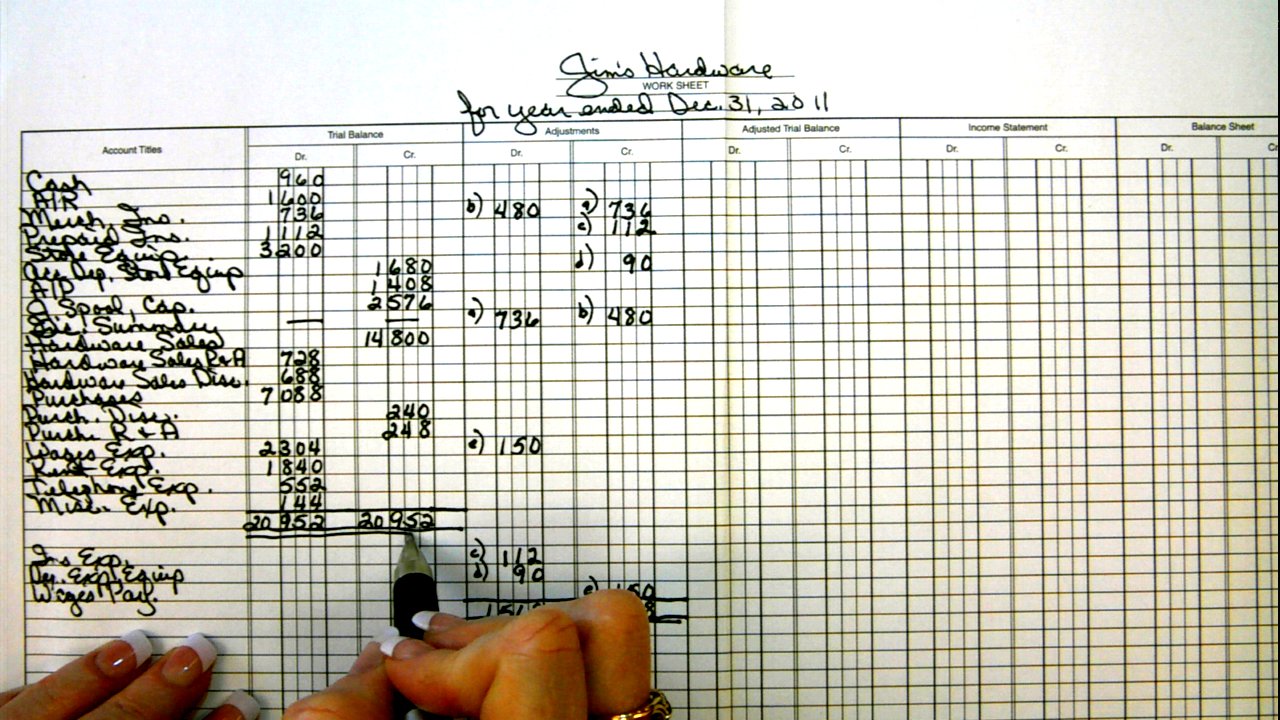 Jim's Hardware
WORK SHEET
for year ended Dec. 31, 2011
Account Titles Trial Balance Adjustments Adjusted Trial Balance Income Statement Balance Sheet
Dr. Cr. Dr. Cr. Dr. Cr. Dr. Cr. Dr. Cr
Cash 960
A/R 1600
Merch. Ins. 736 b) 480 a) 736
Prepaid Ins. 1112 c) 112
Store Equip. 3200
Acc. Dep. Store Equip 1680 d) 90
A/P 1408
J. Spool, Cap. 2576
Inc. Summary — — a) 736 b) 480
Hardware Sales 14800
Hardware Sales R&A 728
Hardware Sales Disc. 688
Purchases 7088
Purch. Disc. 240
Purch. R & A 248
Wages Exp. 2304 e) 150
Rent Exp. 1840
Telephone Exp. 552
Misc. Exp. 144
20952 20952
Ins Exp. c) 112
Dep. Exp. Equip d) 90
Wages Pay. e) 150